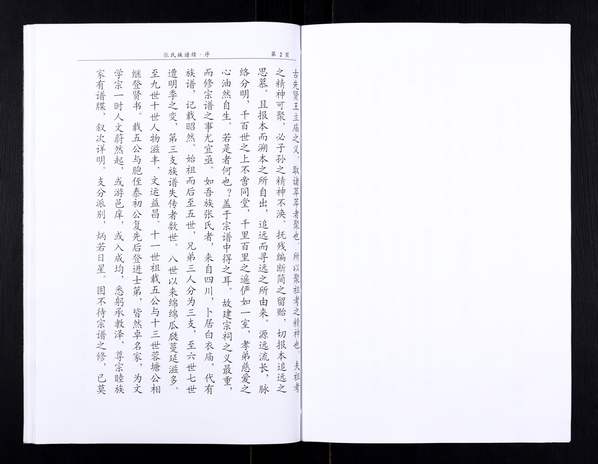 张氏族谱续·序
第2页
古先贤王立庙之义，取诸萃萃者聚也，所以聚祖考之精神也，夫祖考
之精神可聚，必子孙之精神不涣，抚残编断简之留贻，切报本追远之
思慕。且报本而溯本之所自出，追远而寻远之所由来，源远流长，脉
络分明，千百世之上不啻同堂，千里百里之遥俨如一室，孝弟慈爱之
心油然自生，若是者何也？盖于宗谱中得之耳。故建宗祠之义最重，
而修宗谱之事尤宜亟。如吾族张氏者，来自四川，卜居白衣庙，代有
族谱，记载昭然，始祖而后至五世，兄弟三人分为三支，至六世七世
遭明季之变，第三支族谱失传者数世。八世以来绵绵瓜瓞蔓延滋多，
至九世十世人物滋丰，文运益昌，十一世祖载五公与十三世蓉塘公相
继登贤书，载五公与胞侄泰初公复先后登进士第，皆然卓名家，为文
学宗一时人文蔚然起，或游邑庠，或入成均，悉躬承教泽，尊宗睦族
家有谱牒，叙次详明，支分派别，炳若日星，固不待宗谱之修，已莫